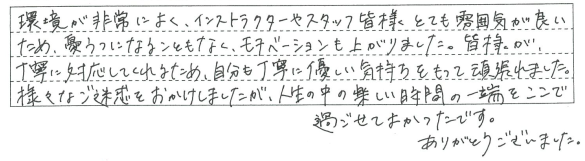 環境が非常によく、インストラクターやスタッフ皆様、とても雰囲気が良い
ため、憂うつになることもなく、モチベーションも上がりました。皆様が、
丁寧に対応してくれるため、自分も丁寧に優しい気持ちをもって頑張れました。
様々なご迷惑をおかけしましたが、人生の中の楽しい時間の一端をここで
過ごせてよかったです。
ありがとうございました。